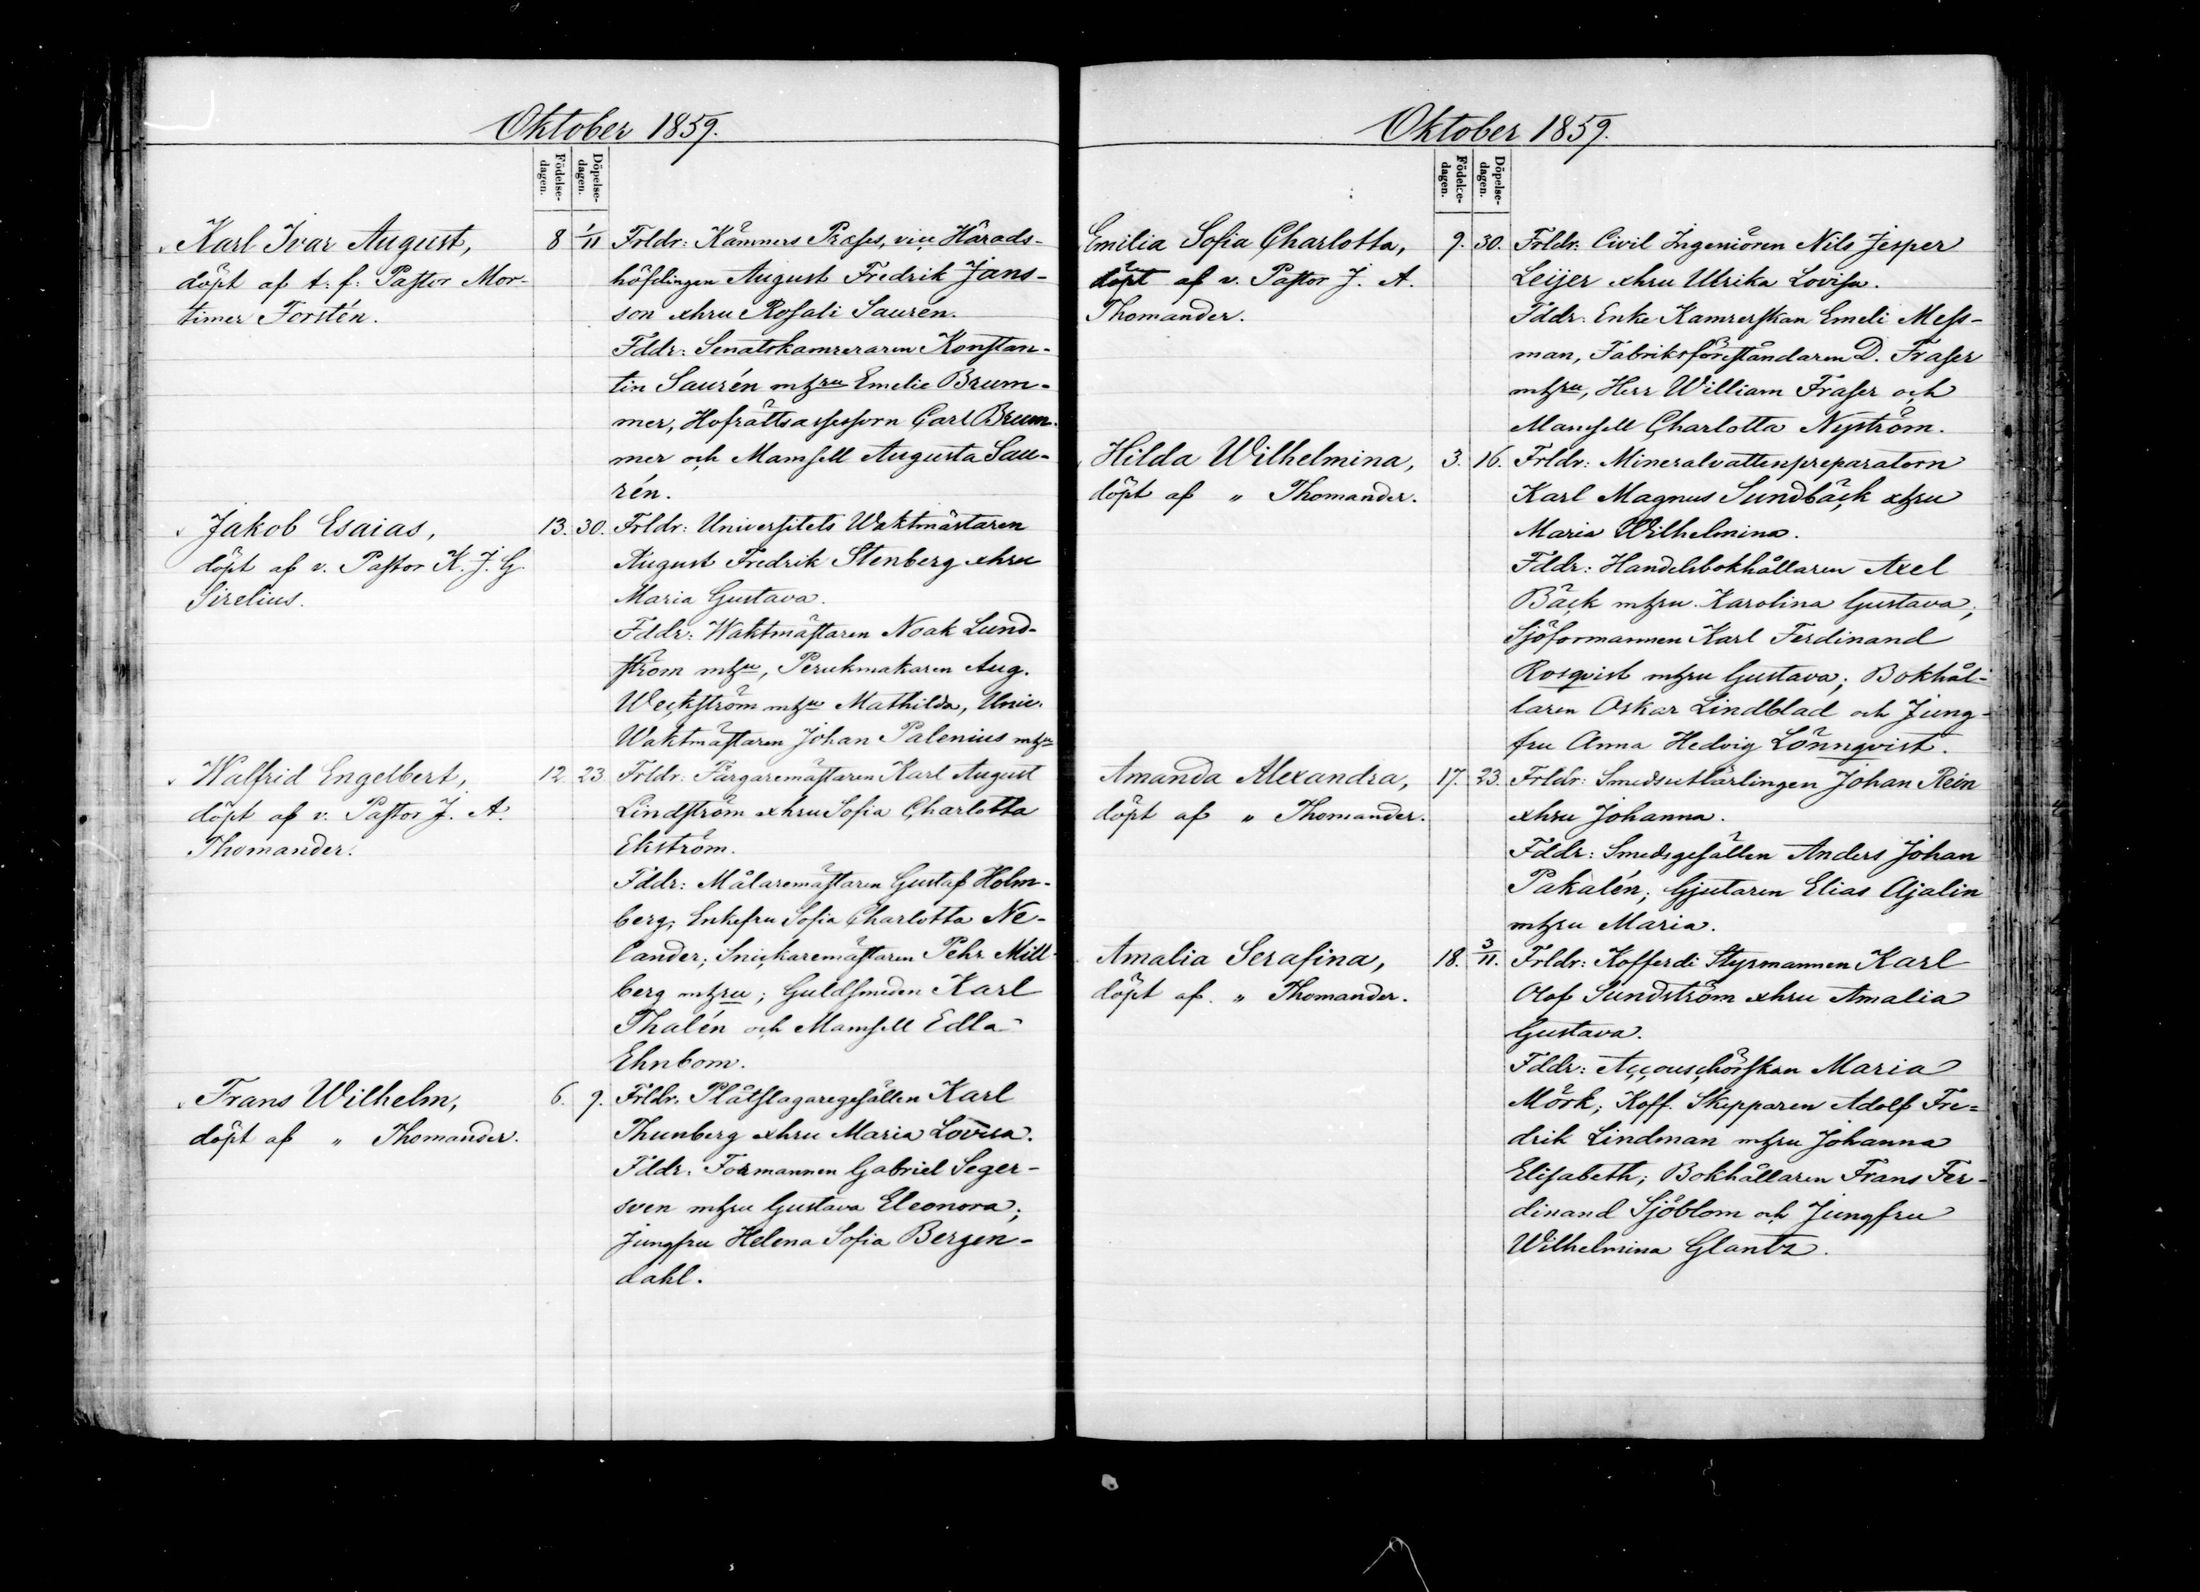 Oktober 1859.
Födelse-
dagen.
Döpelse-
dagen.
Karl Ivar August,
döpt af t. f. Pastor Mor-
timer Forstén.
8 1/11
Frldr: Kämners Præses, vice Härads-
höfdingen August Fredrik Jans-
son o hru Rosali Saurén.
Fddr: Senatskamreraren Konstan-
tin Saurén m hru Emelie Brum-
mer, Hofrättsassessorn Carl Brum-
mer och Mamsell Augusta Sau-
rén.
Jakob Esaias,
döpt af v. Pastor K. J. G.
Sirelius.
13. 30.
Frldr: Universitets Waktmästaren
August Fredrik Stenberg o hru
Maria Gustava.
Fddr: Waktmästaren Noak Lund-
ström m hu, Perukmakaren Aug.
Weckström m hu Mathilda, Univ.
Waktmästaren Johan Palenius m hu
Walfrid Engelbert,
döpt af v. Pastor J. A.
Thomander.
12. 23.
Frldr: Färgaremästaren Karl August
Lindström o hru Sofia Charlotta
Ekström.
Fddr: Målaremästaren Gustaf Holm-
berg; Enkefru Sofia Charlotta Ne-
lander; Snickaremästaren Pehr Mill-
berg m hru; Guldsmeden Karl
Thalén och Mamsell Edla
Ehnbom.
Frans Wilhelm,
döpt af " Thomander.
6. 9.
Frldr: Plåtslagaregesällen Karl
Thunberg o hru Maria Lovisa.
Fddr: Formannen Gabriel Seger-
sven m hru Gustava Eleonora;
Jungfru Helena Sofia Bergen-
dahl.
Oktober 1859.
Födelse-
dagen.
Döpelse-
dagen.
Emilia Sofia Charlotta,
döpt af v. Pastor J. A.
Thomander.
9. 30.
Frldr: Civil Ingeniören Nils Jesper
Leijer o hru Ulrika Lovisa.
Fddr: Enke Kamrerskan Emeli Mess-
man, Fabriksföreståndaren D. Fraser
m hru, Herr William Fraser och
Mamsell Charlotta Nyström.
Hilda Wilhelmina,
döpt af " Thomander.
3. 16.
Frldr: Mineralvattenpreparatorn
Karl Magnus Sundbäck o hru
Maria Wilhelmina.
Fddr: Handelsbokhållaren Axel
Bäck m hru Karolina Gustava;
Sjöformannen Karl Ferdinand
Rosqvist m hru Gustava; Bokhål-
laren Oskar Lindblad och Jung-
fru Anna Hedvig Lönnqvist.
Amanda Alexandra,
döpt af " Thomander.
17. 23.
Frldr: Smedsutlärlingen Johan Rein
o hru Johanna.
Fddr: Smedsgesällen Anders Johan
Pakalén; Gjutaren Elias Ajalin
m hru Maria.
Amalia Serafina,
döpt af " Thomander.
18. 3/11.
Frldr: Kofferdi Styrmannen Karl
Olof Sundström o hru Amalia
Gustava.
Fddr: Accouschörskan Maria
Mörk; Koff. Skepparen Adolf Fre-
drik Lindman m hru Johanna
Elisabeth; Bokhållaren Frans Fer-
dinand Sjöblom och Jungfru
Wilhelmina Glantz.